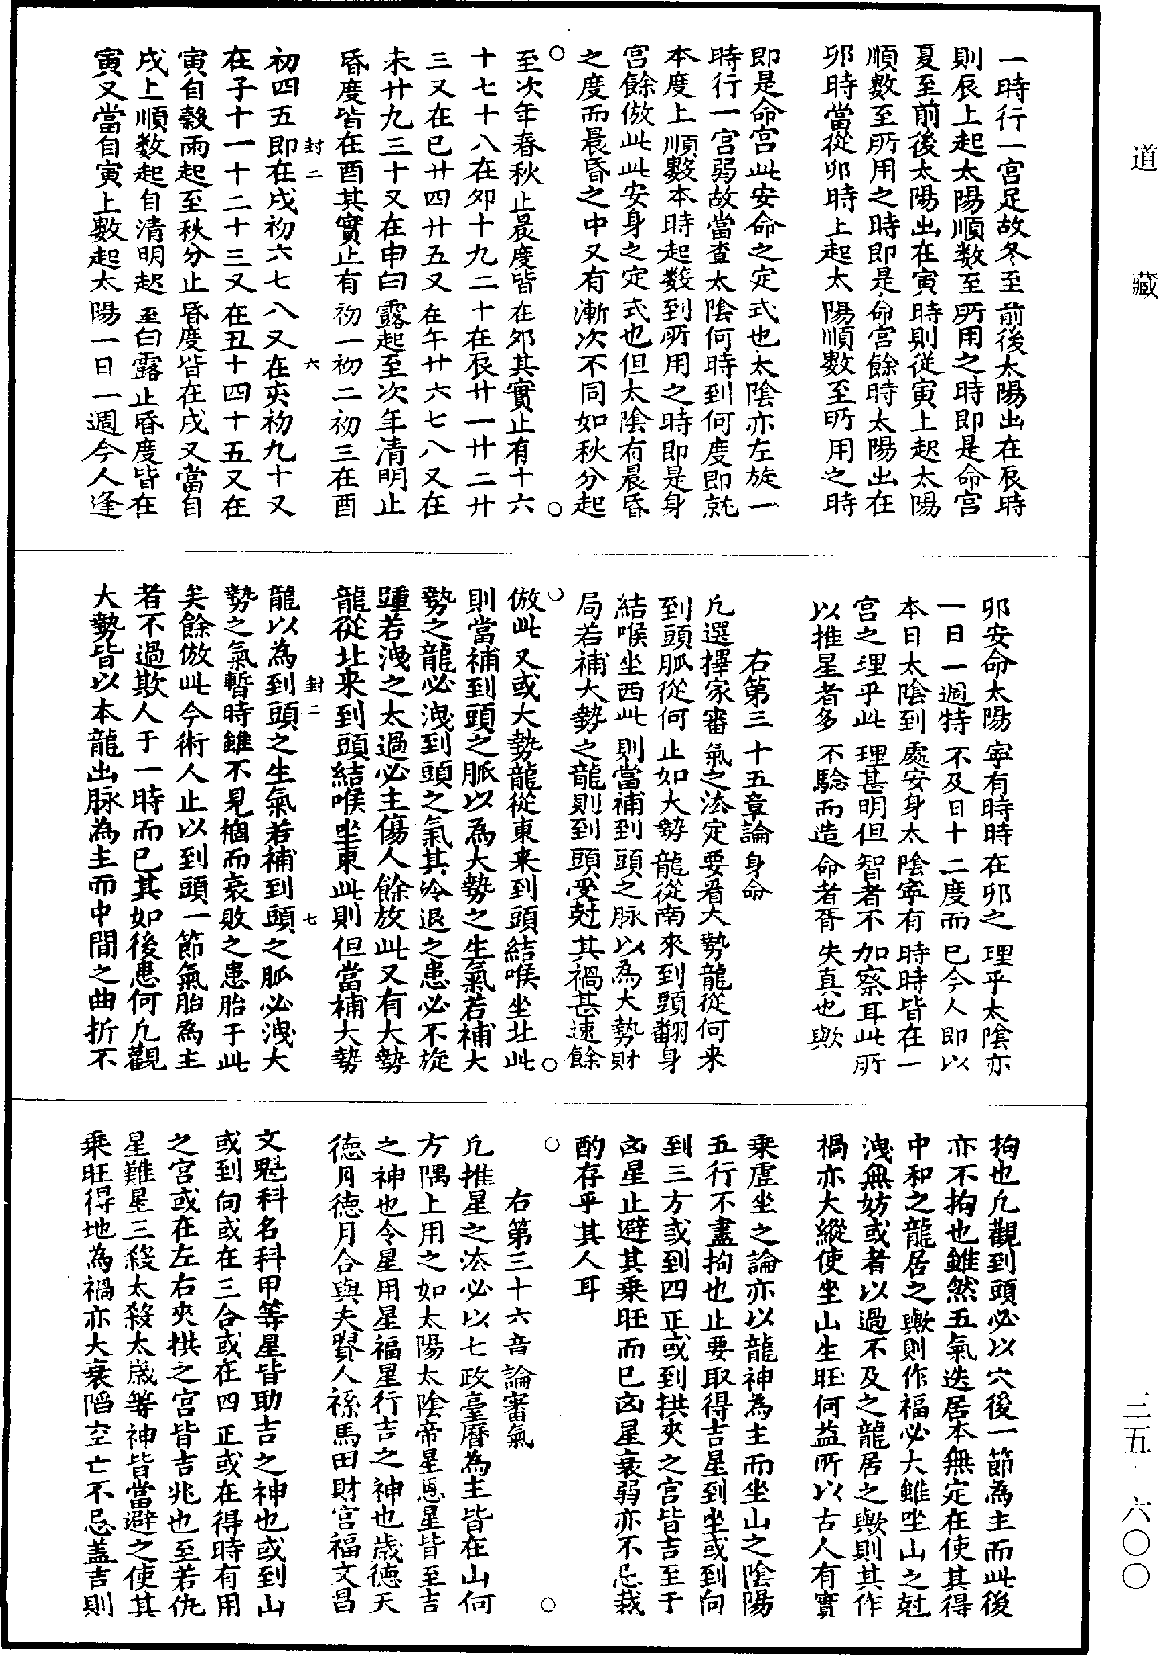 道藏
三五·六〇〇
一時行一宮足故冬至前後太陽出在辰時
則辰上起太陽順數至所用之時即是命宮
夏至前後太陽出在寅時則從寅上起太陽
順數至所用之時即是命宮餘時太陽出在
卯時當從卯時上起太陽順數至所用之時
即是命宮此安命之定式也太陰亦左旋一
時行一宮弱故當查太陰何時到何度即就
本度上順數本時起數到所用之時即是身
宮餘倣此此安身之定式也但太陰有晨昏
之度而晨昏之中又有漸次不同如秋分起
至次年春秋止晨度皆在卯其實止有十六
十七十八在卯十九二十在辰廿一廿二廿
三又在巳廿四廿五又在午廿六七八又在
未廿九三十又在申曰露起至次年清明止
昏度皆在酉其實止有初一初二初三在酉
封二 六
初四五即在戌初六七八又在亥初九十又
在子十一十二十三又在丑十四十五又在
寅自穀雨起至秋分止昏度皆在戌又當自
戌上順數起自清明起至白露止昏度皆在
寅又當自寅上數起太陽一日一週今人逢
卯安命太陽寧有時時在卯之理乎太陰亦
一日一週特不及日十二度而已今人即以
本日太陰到處安身太陰寧有時時皆在一
宮之理乎此理甚明但智者不加察耳此所
以推星者多不驗而造命者胥失真也歟
右第三十五章論身命
凡選擇家審氣之法定要看大勢龍從何来
到頭脈從何止如大勢龍從南來到頭翻身
結喉坐西此則當補到頭之脉以為大勢財
局若補大勢之龍則到頭受尅其禍甚速餘
倣此又或大勢龍從東來到頭結喉坐北此
則當補到頭之脈以為大勢之生氣若補大
勢之龍必洩到頭之氣其冷退之患必不旋
踵若洩之太過必主傷人餘放此又有大勢
龍從北来到頭結喉坐東此則但當補大勢
封二 七
龍以為到頭之生氣若補到頭之脈必洩大
勢之氣暫時雖不見禍而衰敗之患胎于此
矣餘倣此今術人止以到頭一節氣胎為主
者不過欺人于一時而已其如後患何凡觀
大勢皆以本龍出脉為主而中間之曲折不
拘也凡觀到頭必以穴後一節為主而此後
亦不拘也雖然五氣迭居本無定在使其得
中和之龍居之歟則作福必大雖坐山之尅
洩無妨或者以過不及之龍居之歟則其作
禍亦大縱使坐山生旺何益所以古人有實
乘虛坐之論亦以龍神為主而坐山之陰陽
五行不盡拘也止要取得吉星到坐或到向
到三方或到四正或到拱夾之宮皆吉至于
凶星止避其乘旺而已凶星衰弱亦不忌裁
酌存乎其人耳
右第三十六音論審氣
凡推星之法必以七政臺曆為主皆在山何
方隅上用之如太陽太陰帝星恩星皆至吉
之神也令星用星福星行吉之神也歲德天
德月德月合與夫貴人祿馬田財官福文昌
文魁科名科甲等星皆助吉之神也或到山
或到向或在三合或在四正或在得時有用
之宮或在左右夾拱之宮皆吉兆也至若仇
星難星三殺太殺太歲等神皆當避之使其
乘旺得地為禍亦大衰陷空亡不忌蓋吉則